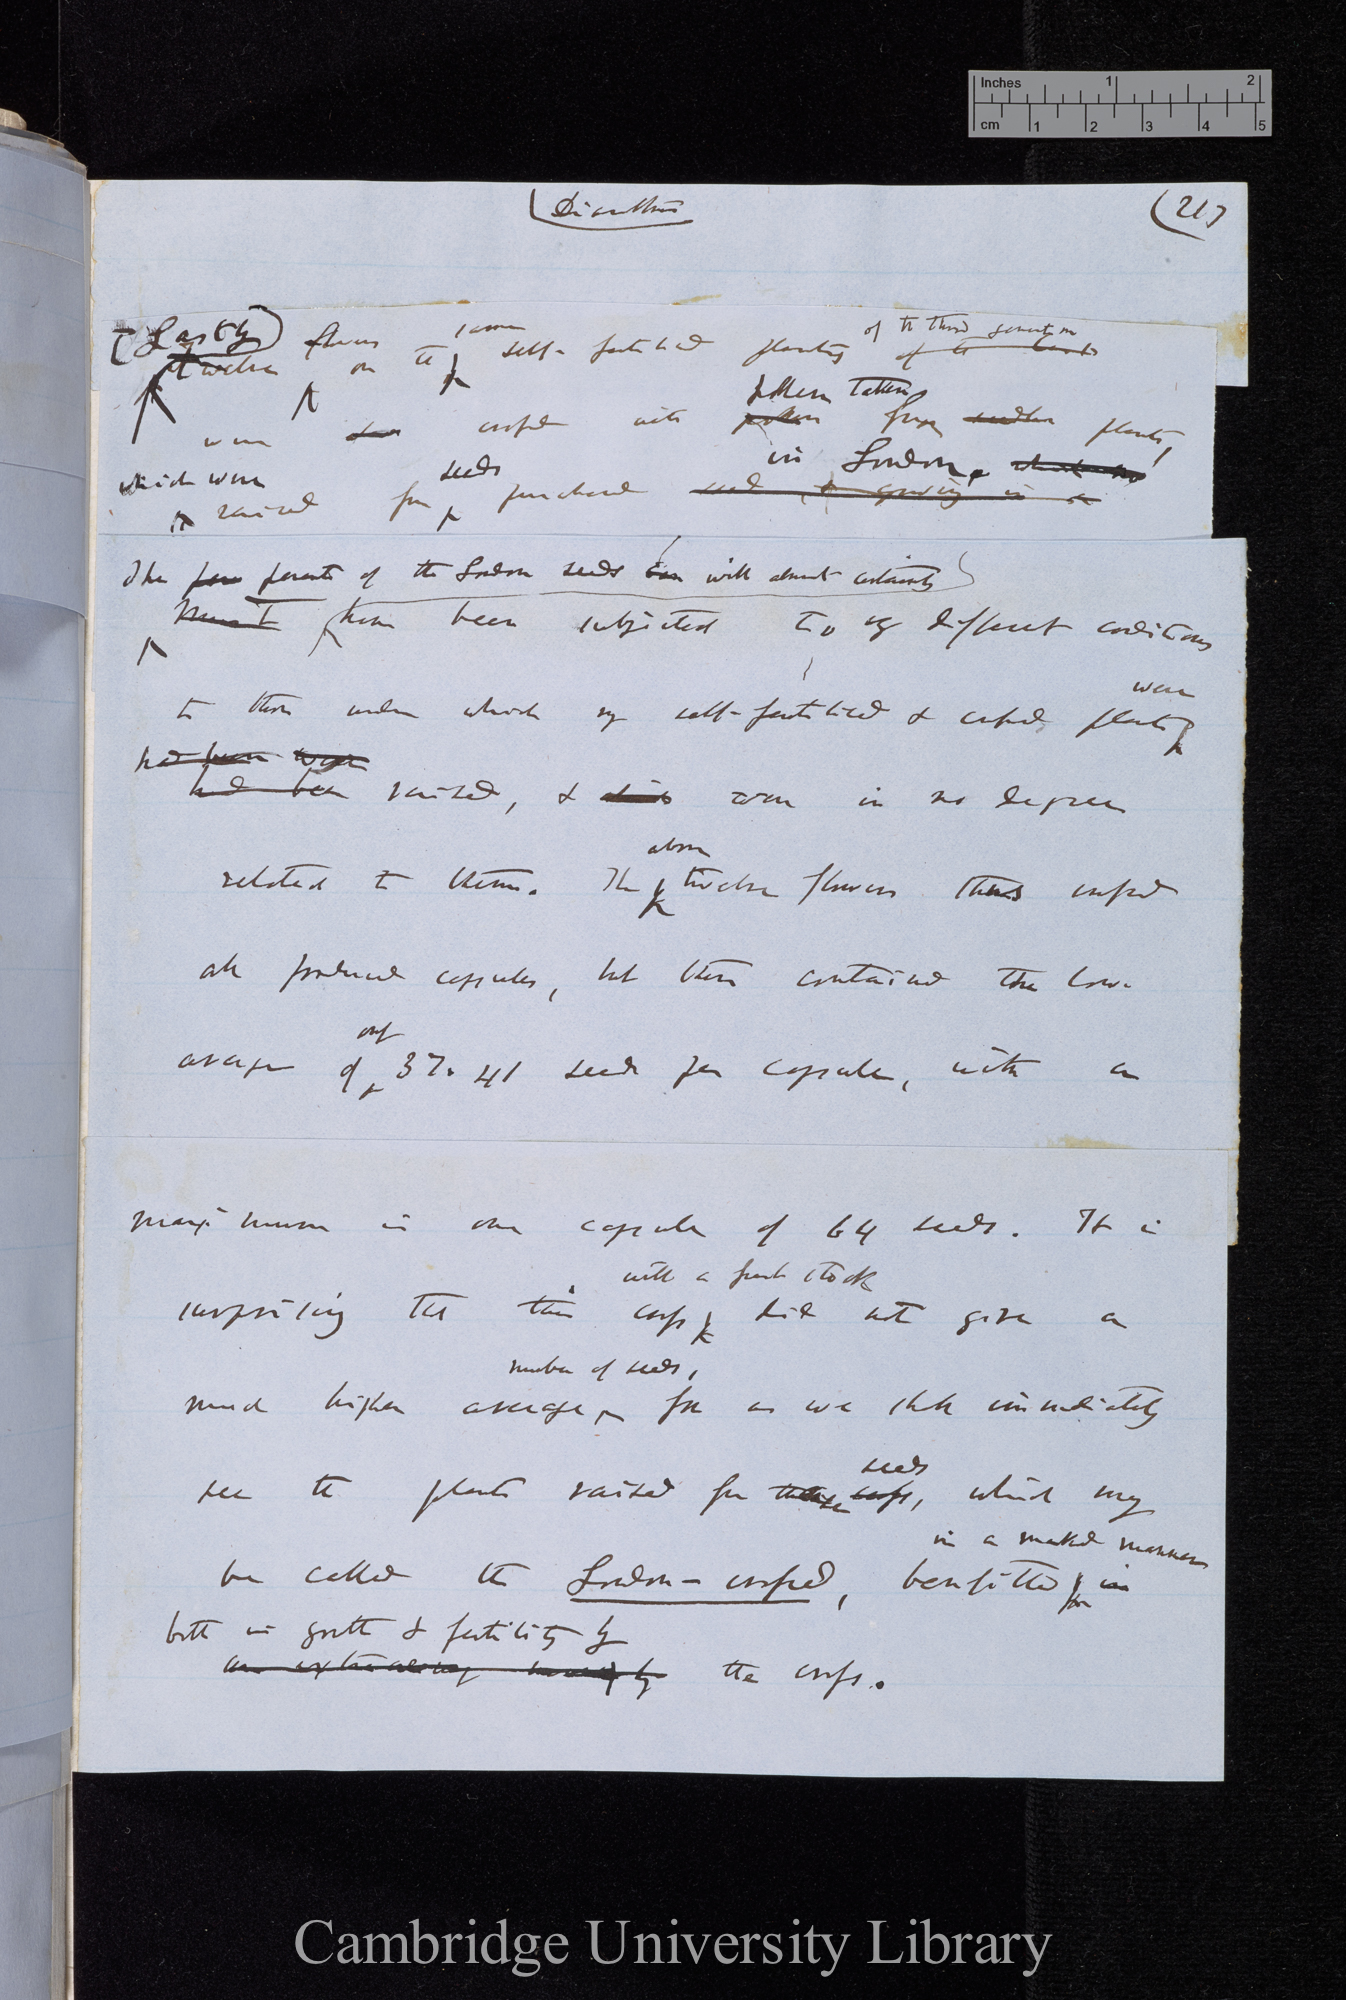 Inches 1 2
cm 1 2 3 4 5
Dianthus
(217
Lastly flowers same of the third generation
twelve on the self-fertilised plants of the
pollen taken
were crossed with pollen from plants,
in London.
which were seeds
raised from purchased seed & growing in a
The parents of the London seeds will almost certainly
must have been subjected to very different conditions
were
to those under which my self-fertilised & crossed plants
had been were
had been raised, & were in no degree
above
related to them. The twelve flowers thus crossed
all produced capsules, but these contained the low
only
average of 37.41 seeds per capsule, with a
maximum in one capsule of 64 seeds. It is
with a fresh stock
surprising that this cross did not give a
number of seeds,
much higher average for as we shall immediately
seeds
see the plants raised from these cross, which may
in a marked manner
be called the London-crossed, benefitted in
both in growth & fertility by
an extraordinary by the cross.
Cambridge University Library